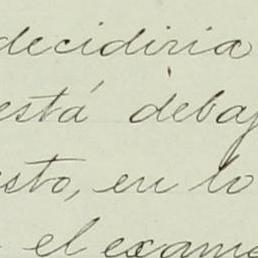 decidiria
está debaj
esto, en lo
el exame